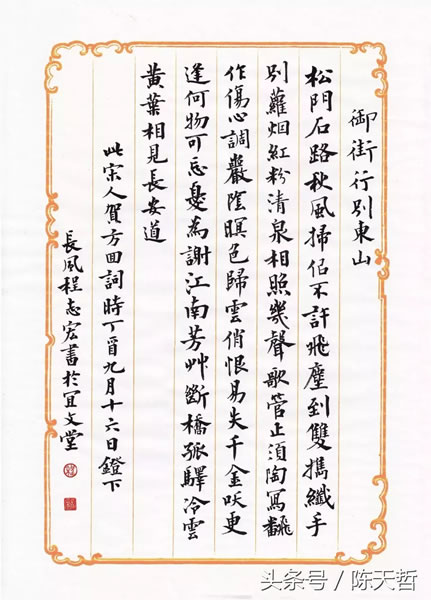 御街行别東山
松門石路秋風掃佀不許飛塵到雙攜纖手
别蘿烟紅粉清泉相照幾聲歌管正須陶寫飜
作傷心調巖陰暝色歸雲悄恨易失千金咲更
逢何物可忘憂為謝江南芳艸斷橋孤驛冷雲
黄葉相見長安道
此宋人賀方回詞時丁酉九月十六日鐙下
長風程志宏書於宜文堂
头条号 / 陈天哲